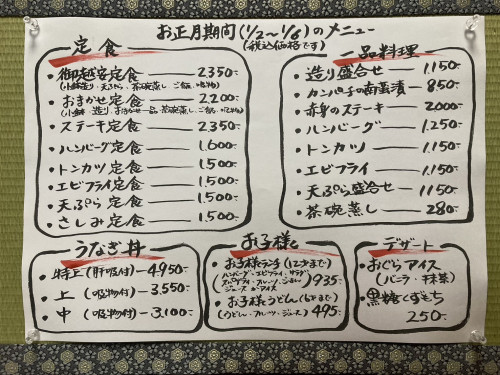 お正月期間(1/2〜1/6)のメニュー
(税込価格です)
定食
・御越安定食 2,350-
(小鉢・造り・天ぷら・茶碗蒸し・ご飯・吸物)
・おまかせ定食 2,200-
・ステーキ定食 2,350-
・ハンバーグ定食 1,600-
・トンカツ定食 1,500-
・エビフライ定食 1,500-
・天ぷら定食 1,500-
・さしみ定食 1,500-
一品料理
・造り盛合せ 1,150-
・カンパチの南蛮漬 850-
・赤身のステーキ 2,000-
・ハンバーグ 1,250-
・トンカツ 1,150-
・エビフライ 1,150-
・天ぷら盛合せ 1,150-
・茶碗蒸し 280-
うなぎ丼
・特上(肝吸付) 4,950-
・上(吸物付) 3,550-
・中(吸物付) 3,100-
お子様
・お子様ランチ(12才まで)
ハンバーグ・エビフライ・サラダ
スパゲティ・スープ・ごはん
ジュース・アイス 935-
・お子様うどん(6才まで)
(うどん・フルーツ・ジュース) 495-
デザート
・おぐらアイス
(バニラ・抹茶)
・黒糖くずもち
250-